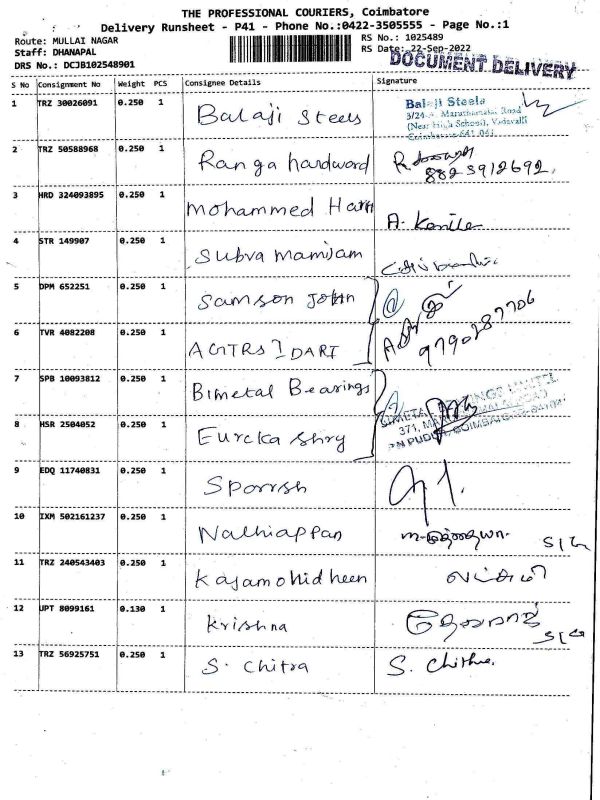 THE PROFESSIONAL COURIERS, Coimbatore
Delivery Runsheet - P41 - Phone No.:0422-3505555 - Page No.:1
Route: MULLAI NAGAR
RS No.: 1025489
Staff: DHANAPAL
RS Date: 22-Sep-2022
DRS No.: DCJB102548901
DOCUMENT DELIVERY
S No Consignment No Weight PCS Consignee Details Signature
1 TRZ 30026091 0.250 1 Balaji Steels
Balaji Steels
3/24-A, Maruthamalai Road
(Near High School), Vadavalli
Coimbatore-641 041
2 TRZ 50588968 0.250 1 Ranga hardword
8823912692
3 HRD 324093895 0.250 1 Mohammed Harr A.
4 STR 149907 0.250 1 Subra maniam
5 DPM 652251 0.250 1 Samson John
9790287706
6 TVR 4082208 0.250 1 DART
7 SPB 10093812 0.250 1 Bimetal Bearings
BIMETAL BEARINGS LIMITED
8 HSR 2504052 0.250 1 Eureka Shry
9 EDQ 11740831 0.250 1 Sporrsh
10 IXM 502161237 0.250 1 Nathiappan
11 TRZ 240543403 0.250 1 Kajamohidheen லட்சுமி
12 UPT 8099161 0.130 1 Krishna
13 TRZ 56925751 0.250 1 S. Chitra S. Chithra